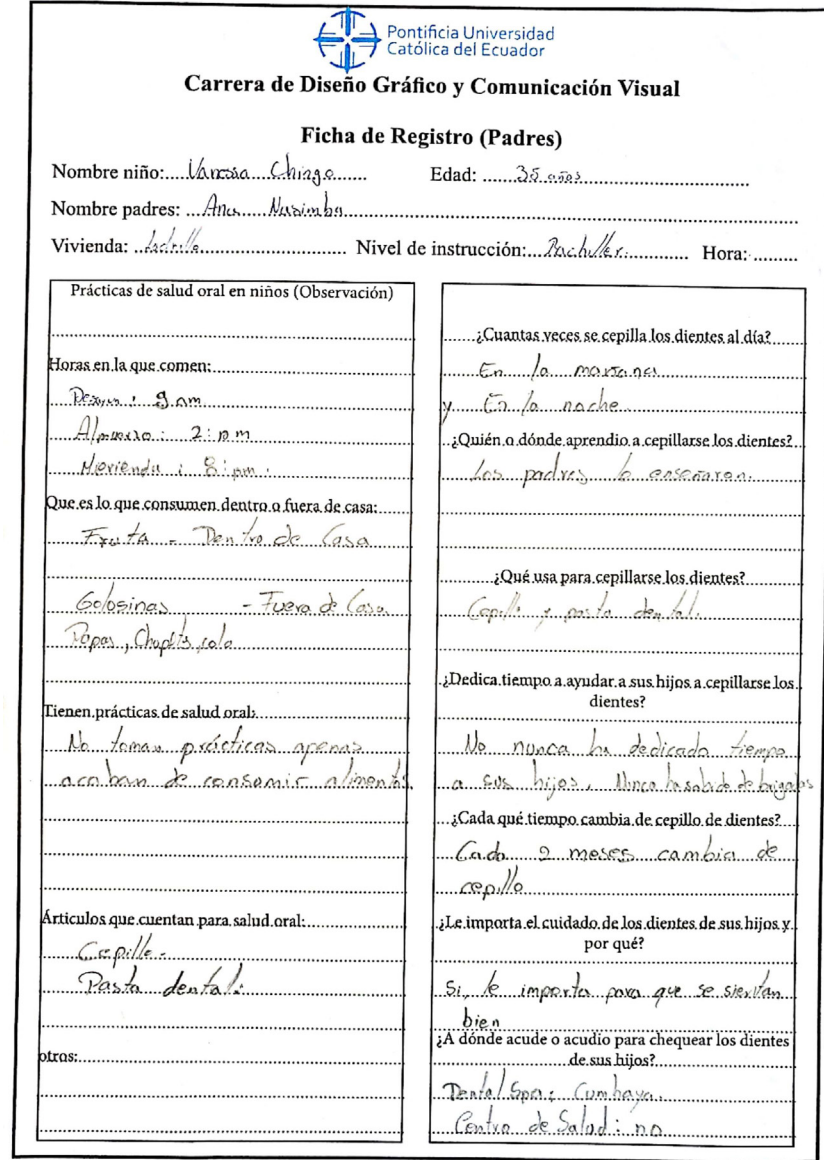 Pontificia Universidad
Católica del Ecuador
Carrera de Diseño Gráfico y Comunicación Visual
Ficha de Registro (Padres)
Nombre niño: Vanessa Chingo Edad: 35 años
Nombre padres: Ana Nasimba
Vivienda: Ladrillo Nivel de instrucción: Bachiller. Hora:
Prácticas de salud oral en niños (Observación)
Horas en la que comen:
9 am
Almuerzo: 2: pm
Merienda: 8: pm.
Que es lo que consumen dentro o fuera de casa:
Fruta - Dentro de Casa
Golosinas - Fuera de Casa
Papas, cola
Tienen prácticas de salud oral:
No toman prácticas apenas
acaban de consumir alimentos.
Árticulos que cuentan para salud oral:
Cepillo.
Pasta dental.
otros:
¿Cuantas veces se cepilla los dientes al día?
En la manana
y En la noche.
¿Quién o dónde aprendio a cepillarse los dientes?
Los padres lo enseñaron.
¿Qué usa para cepillarse los dientes?
Cepillo y pasta dental.
¿Dedica tiempo a ayudar a sus hijos a cepillarse los
dientes?
No nunca ha dedicado tiempo
a sus hijos. Nunca ha sabido de brigadas
¿Cada qué tiempo cambia de cepillo de dientes?
Cada 2 meses cambia de
cepillo
¿Le importa el cuidado de los dientes de sus hijos y
por qué?
Si, le importa para que se sientan
bien
¿A dónde acude o acudio para chequear los dientes
de sus hijos?
Dental Spa: Cumbaya.
Centro de Salud: no